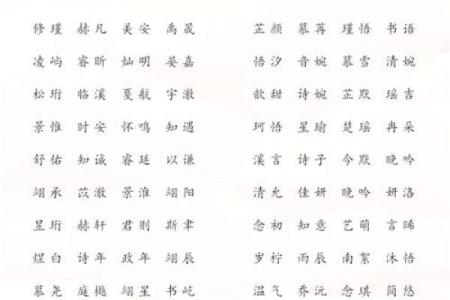 修瑾 赫凡 美安 禹晟 芷颜 慕苒 瑾悟 书语
凌屿 睿昕 灿明 晏嘉 悟汐 音婉 慕雪 清婉
松珩 临溪 戛航 宇澈 歆甜 诗婉 芷默 瑶吉
景惟 时安 怀鸣 知遇 珂悟 星瑜 楚瑶 冉朵
舒佑 知诚 睿廷 以谦 溪言 诗子 今默 晚吟
翊承 苡澈 景淮 翊阳 清允 佳妍 晚吟 妍洛
昱珩 赫轩 君则 斯聿 念初 知意 艺萌 言晞
煜白 诗年 政年 翊辰 岁柠 雨辰 南絮 沐悟
慕尧 庭樾 翊星 书屹 温气 乔沅 念琪 简悠